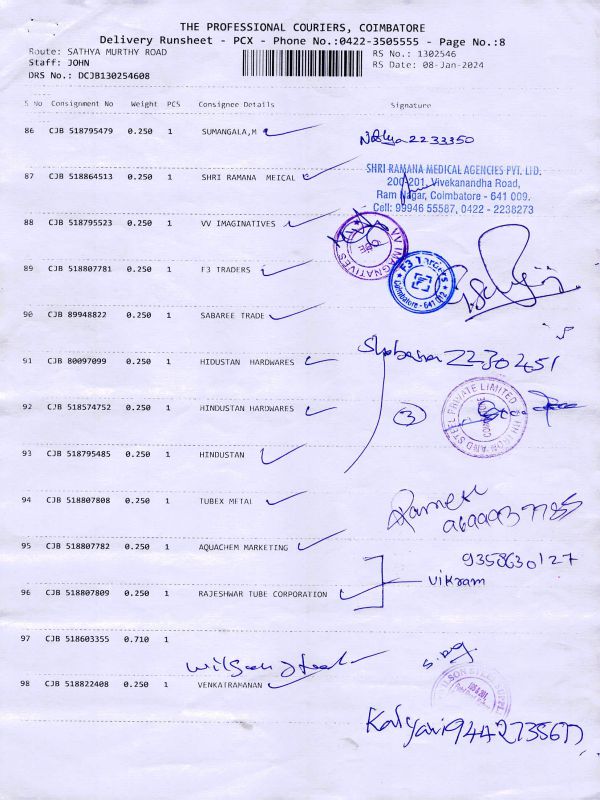 THE PROFESSIONAL COURIERS, COIMBATORE
Delivery Runsheet - PCX - Phone No.:0422-3505555 - Page No.:8
Route: SATHYA MURTHY ROAD
RS No.: 1302546
Staff: JOHN
RS Date: 08-Jan-2024
DRS No.: DCJB130254608
S No Consignment No Weight PCS Consignee Details Signature
86 CJB 518795479 0.250 1 SUMANGALA,M
2233350
87 CJB 518864513 0.250 1 SHRI RAMANA MEICAL
SHRI RAMANA MEDICAL AGENCIES PVT. LTD.
200-201, Vivekanandha Road,
Ram Nagar, Coimbatore - 641 009.
Cell: 99946 55587, 0422 - 2238273
88 CJB 518795523 0.250 1 VV IMAGINATIVES
VV IMAGNATIVES
CBE
89 CJB 518807781 0.250 1 F3 TRADERS
F3 Targets
Coimbatore - 641 012
90 CJB 89948822 0.250 1 SABAREE TRADE
91 CJB 80097099 0.250 1 HIDUSTAN HARDWARES
2230451
92 CJB 518574752 0.250 1 HINDUSTAN HARDWARES
3
IRON AND STEEL PRIVATE LIMITED
93 CJB 518795485 0.250 1 HINDUSTAN
94 CJB 518807808 0.250 1 TUBEX METAL
95 CJB 518807782 0.250 1 AQUACHEM MARKETING
9358630127
96 CJB 518807809 0.250 1 RAJESHWAR TUBE CORPORATION
Vikram
97 CJB 518603355 0.710 1
Wilson Steel
98 CJB 518822408 0.250 1 VENKATRAMANAN
Kalyani 9442735677